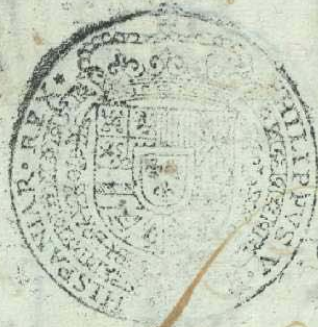 PHILIPPVS·V·
HISPANIAR·REX·